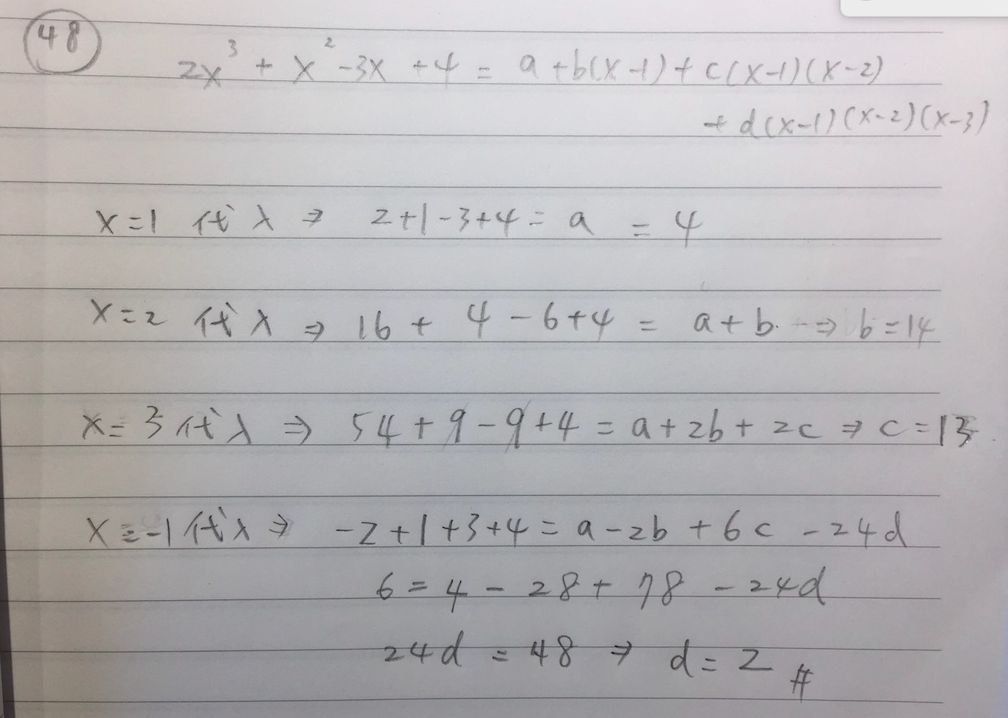 48
2x³ + x² -3x + 4 = a + b(x-1) + c(x-1)(x-2)
+ d(x-1)(x-2)(x-3)
x=1 代入 ⇒ 2+1-3+4 = a = 4
x=2 代入 ⇒ 16 + 4 - 6+4 = a+b ⇒ b=14
x=3 代入 ⇒ 54+9-9+4 = a+2b+2c ⇒ c=13
x=-1 代入 ⇒ -2+1+3+4 = a-2b+6c -24d
6 = 4 - 28 + 78 - 24d
24d = 48 ⇒ d=2 #